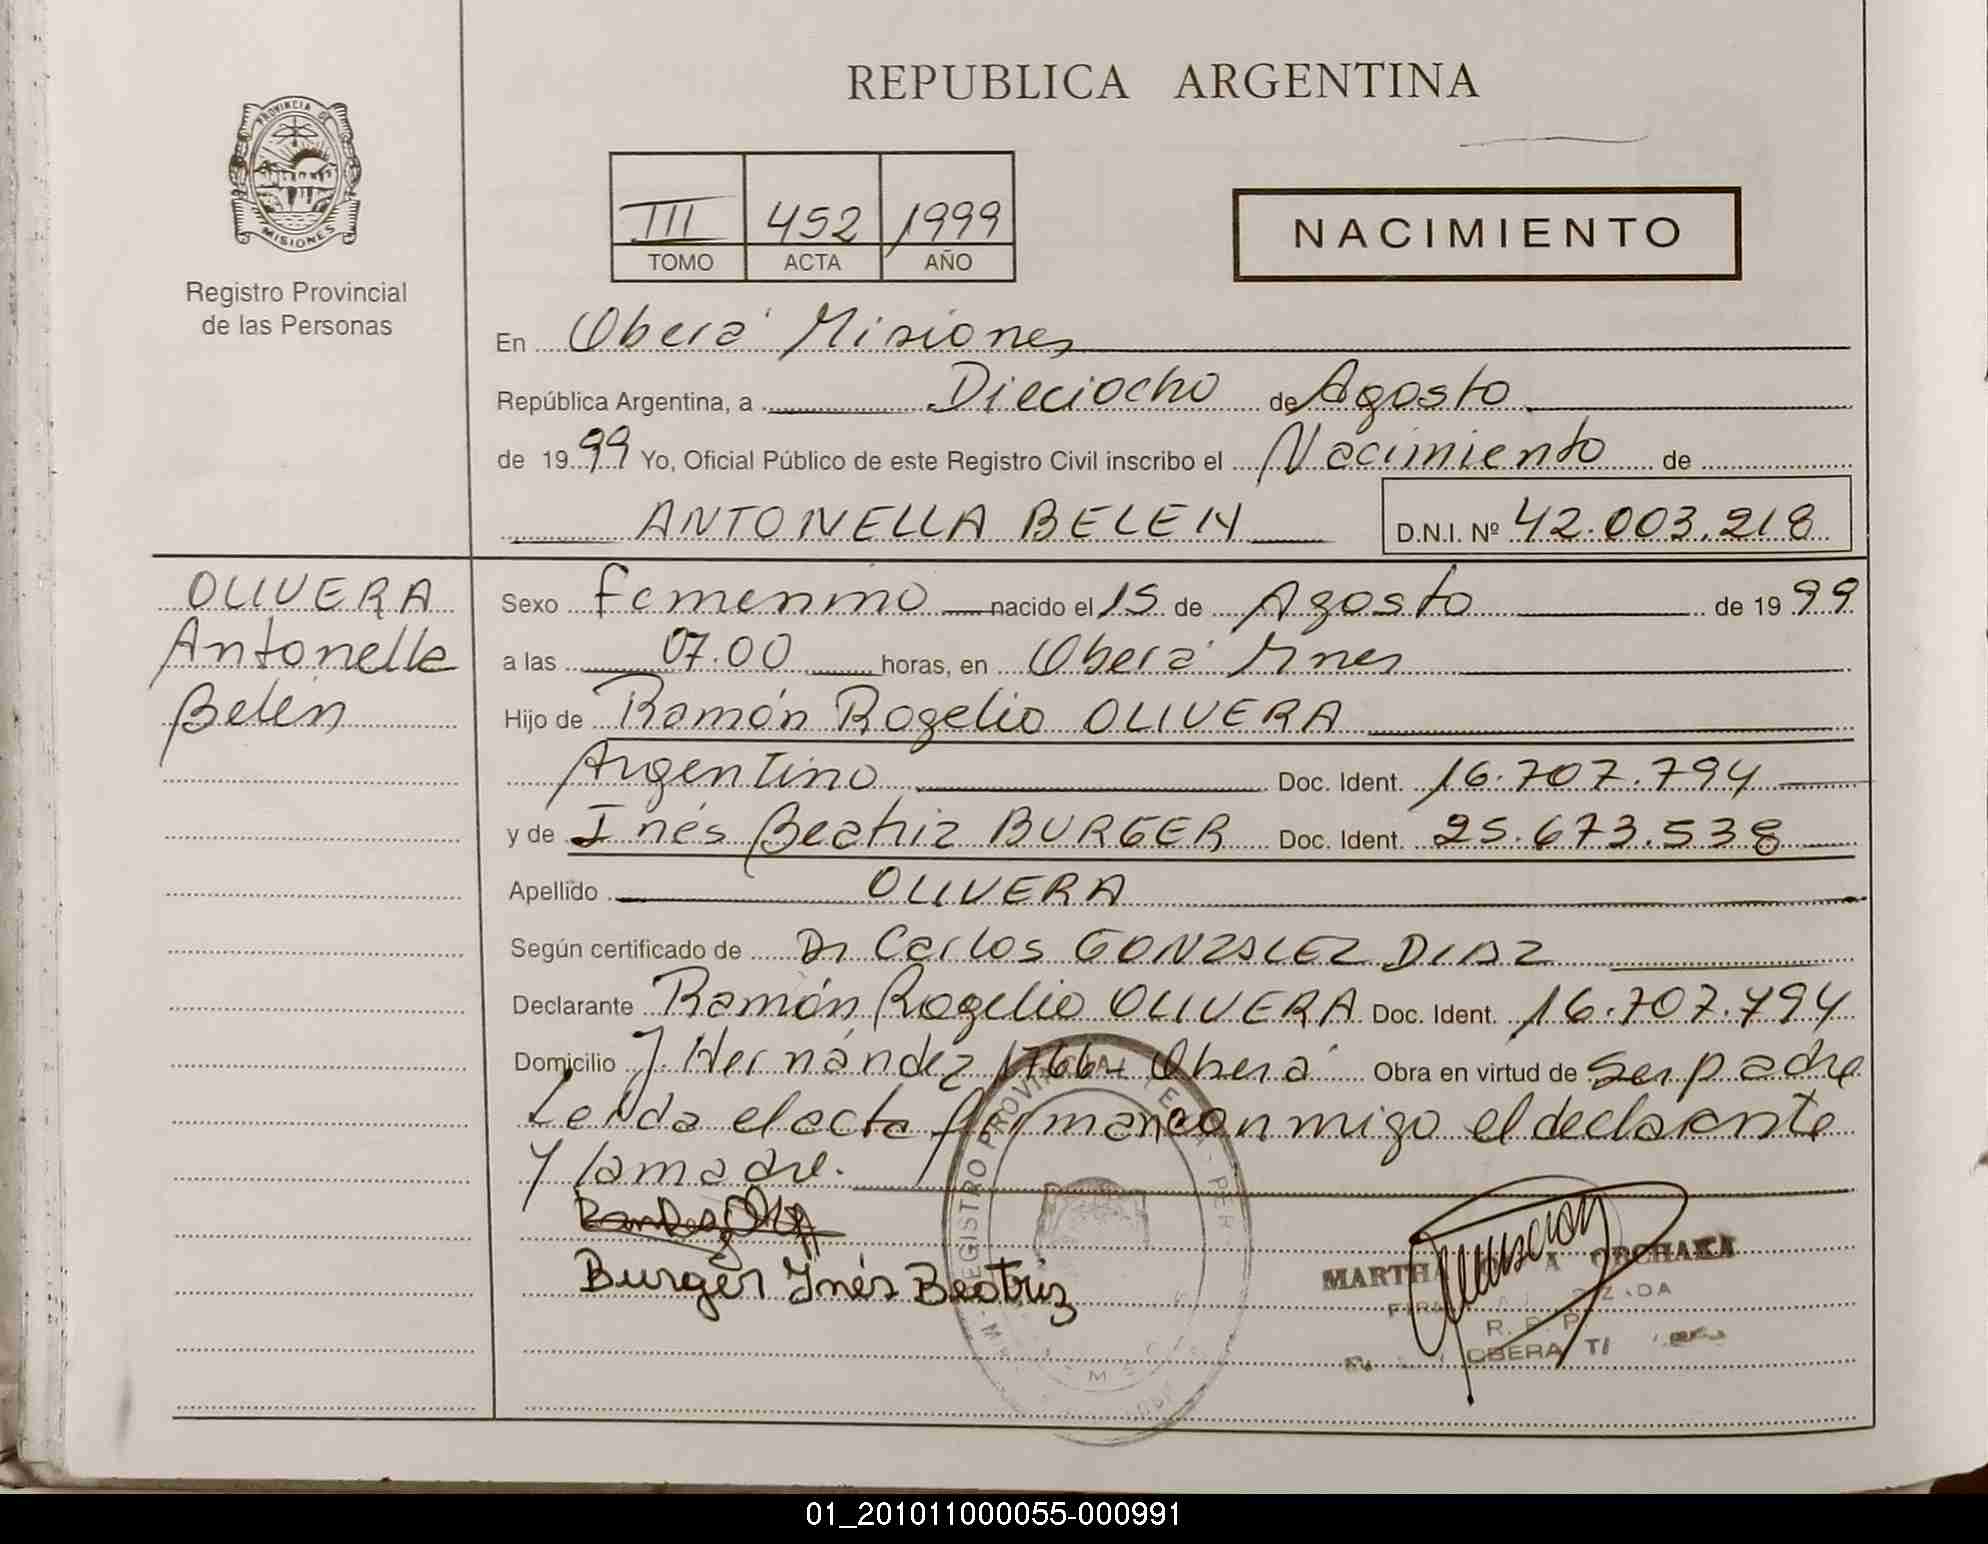 REPUBLICA ARGENTINA
PROVINCIA DE
MISIONES
Registro Provincial
de las Personas
III 452 1999
TOMO ACTA AÑO
NACIMIENTO
En Oberá Misiones
República Argentina, a Dieciocho de Agosto
de 1999 Yo, Oficial Público de este Registro Civil inscribo el Nacimiento de
ANTONELLA BELEN D.N.I. Nº 42.003.218
OLIVERA
Antonella
Belén
Sexo femenino nacido el 15 de Agosto de 1999
a las 07.00 horas, en Oberá Mnes
Hijo de Ramón Rogelio OLIVERA
Argentino Doc. Ident. 16.707.794
y de Inés Beatriz BURGER Doc. Ident. 25.673.538
Apellido OLIVERA
Según certificado de Dr Carlos GONZALEZ DIAZ
Declarante Ramón Rogelio OLIVERA Doc. Ident. 16.707.794
Domicilio J. Hernández 1766 Oberá Obra en virtud de ser padre
Leída el acta firman conmigo el declarante
y la madre.
Burger Inés Beatriz
REGISTRO PROVINCIAL
MARTHA
R. P. P.
OBERA
01_201011000055-000991